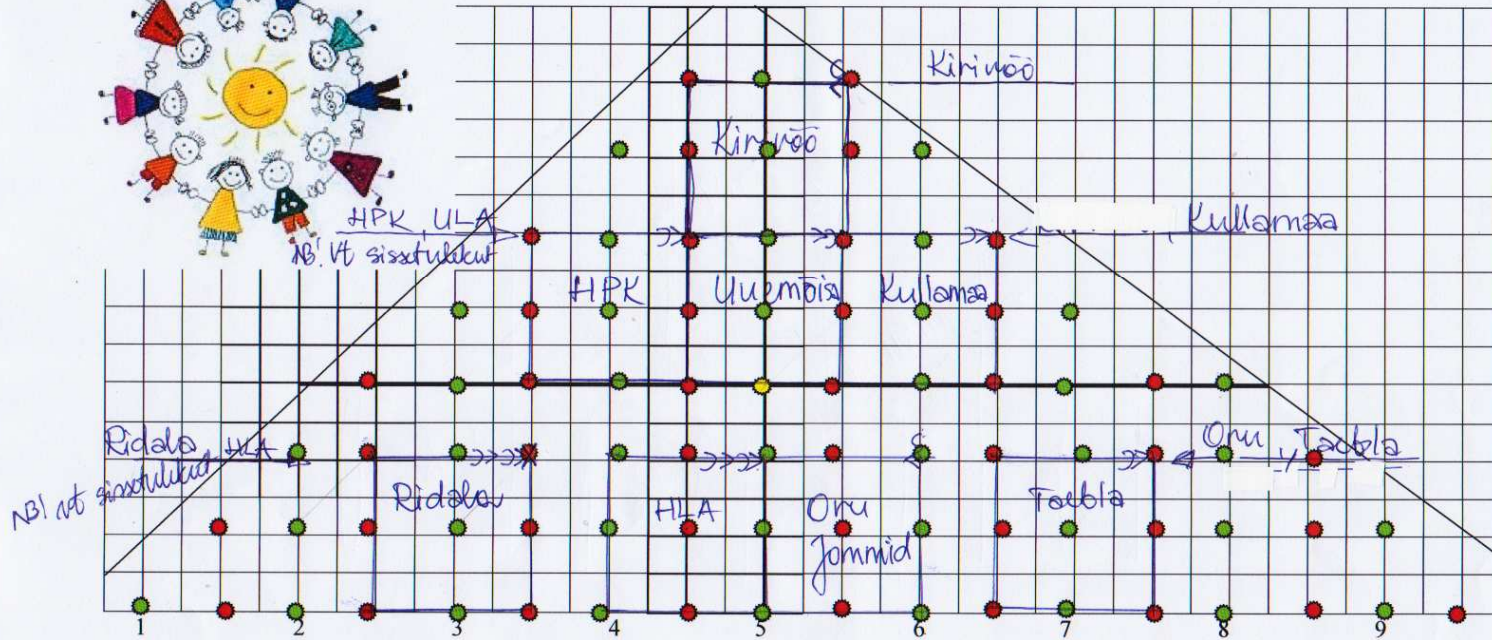 Kirivöö
Kirivöö
HPK, ULA
NB! Vt sissetulekut
Kullamaa
HPK Uuemõisa Kullamaa
Ridala, HLA
NB! vt sissetulekut
Oru, Taebla
Ridala HLA Oru Taebla
Jommid
1 2 3 4 5 6 7 8 9